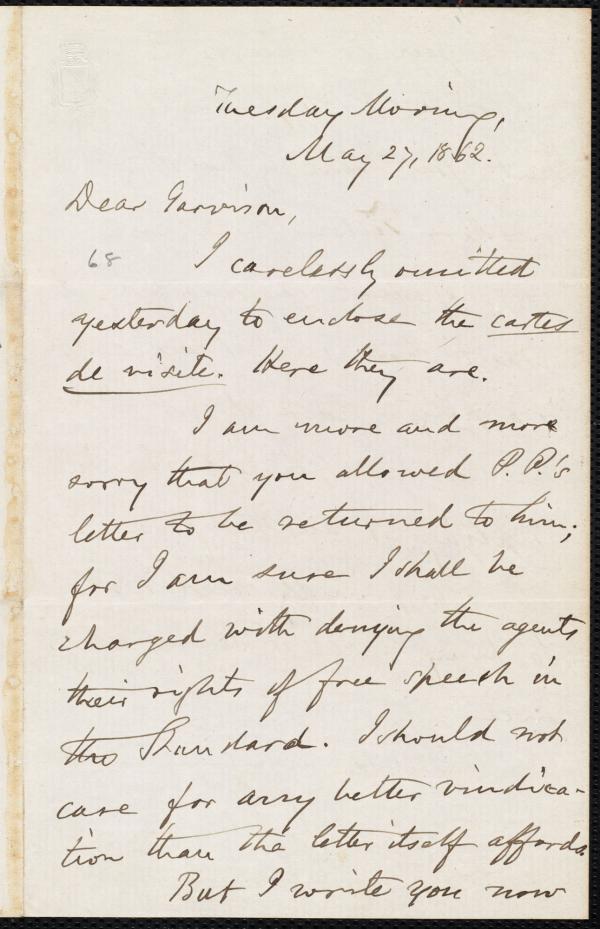 Tuesday Morning,
May 27, 1862.
Dear Garrison,
68
I carelessly omitted
yesterday to enclose the cartes
de visite. Here they are.
I am more and more
sorry that you allowed P. P.'s
letter to be returned to him;
for I am sure I shall be
charged with denying the agents
their rights of free speech in
the Standard. I should not
care for any better vindica-
tion than the letter itself affords.
But I write you now